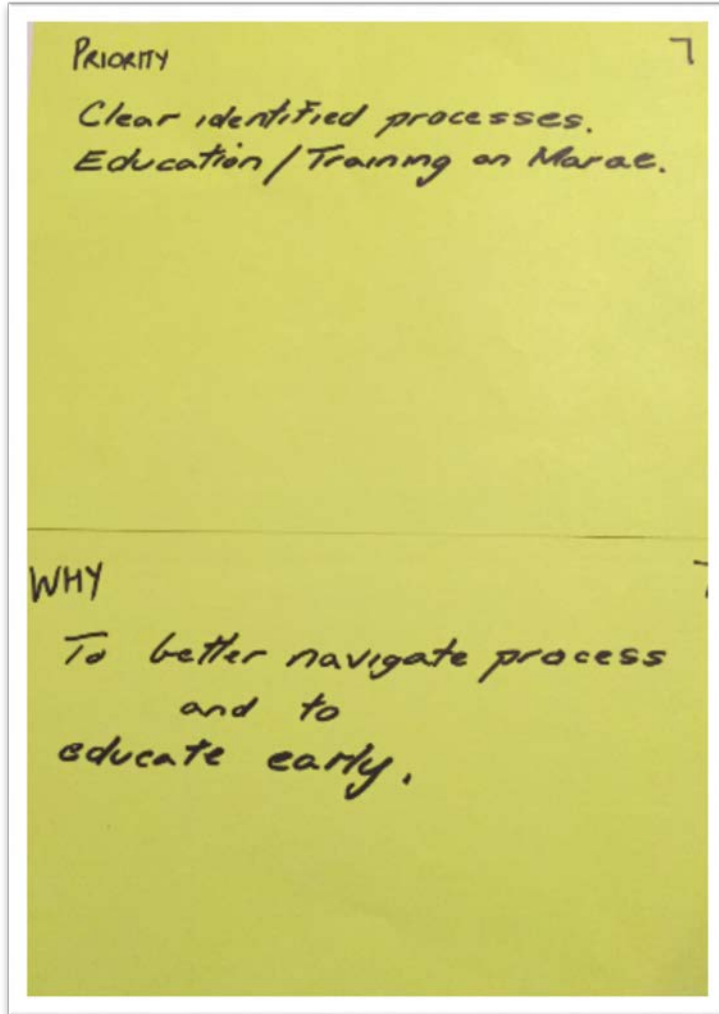 PRIORITY 7
Clear identified processes.
Education/Training on Marae.
WHY 7
To better navigate process
and to
educate early.